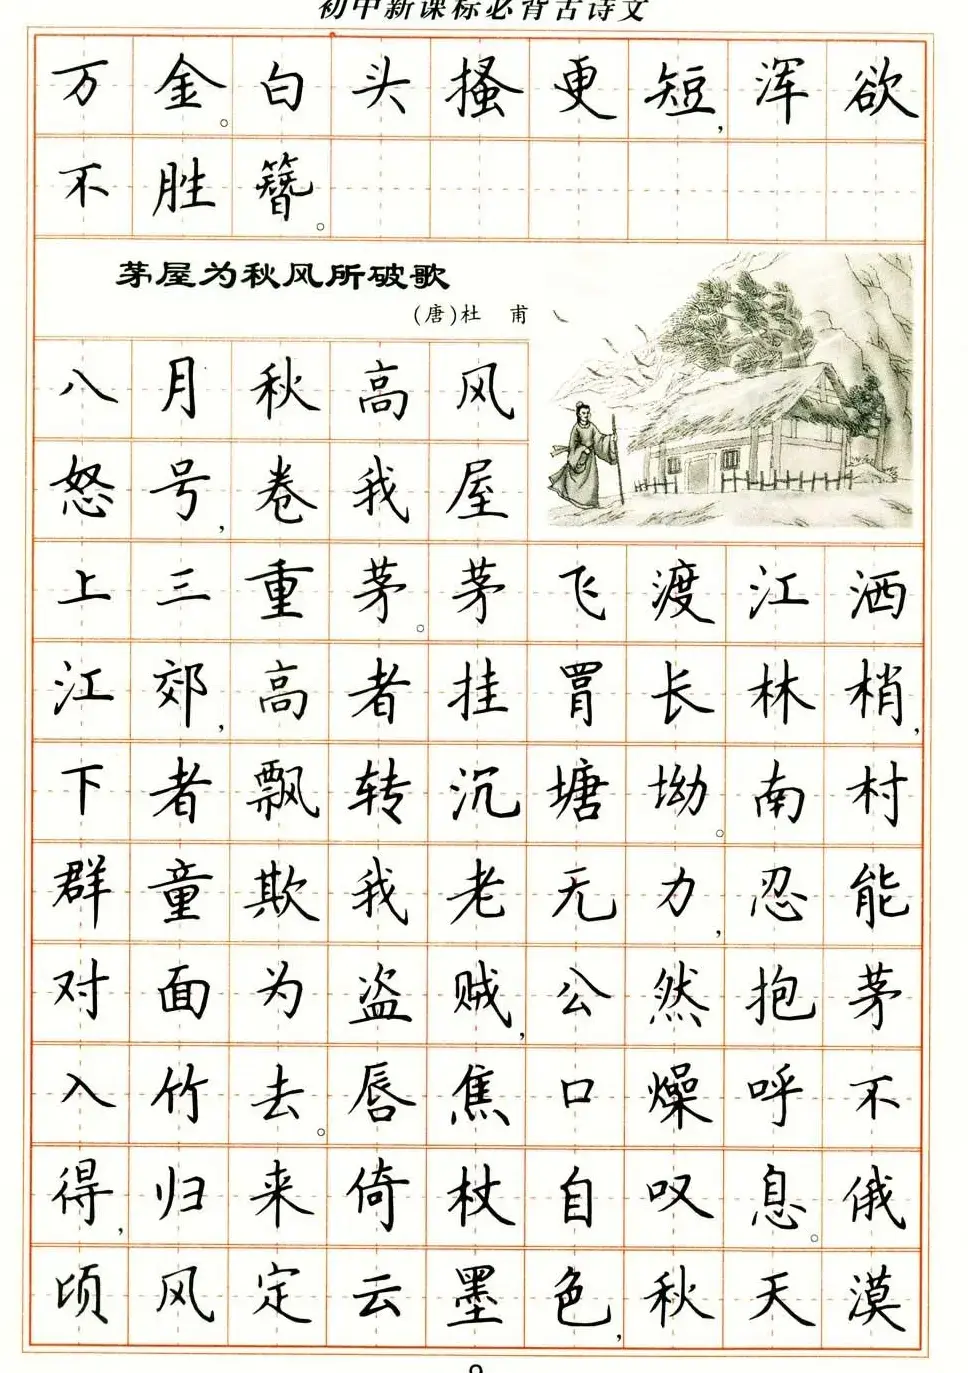 初中新课标必背古诗文
万金。白头搔更短,浑欲
不胜簪。
茅屋为秋风所破歌
(唐)杜 甫
八月秋高风
怒号,卷我屋
上三重茅。茅飞渡江洒
江郊,高者挂罥长林梢,
下者飘转沉塘坳。南村
群童欺我老无力,忍能
对面为盗贼,公然抱茅
入竹去。唇焦口燥呼不
得,归来倚杖自叹息。俄
顷风定云墨色,秋天漠